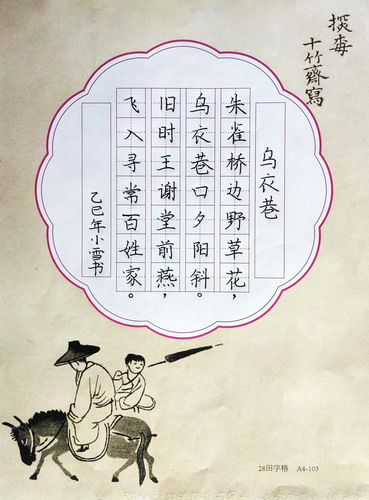 探
十竹齋寫
乌衣巷
朱雀桥边野草花，
乌衣巷口夕阳斜。
旧时王谢堂前燕，
飞入寻常百姓家。
乙巳年小雪书
28田字格 A4-103